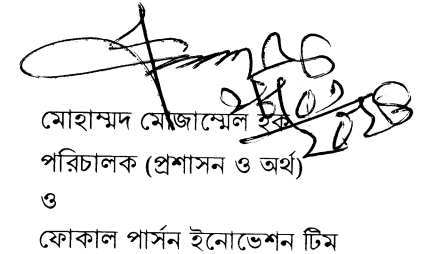 মোহাম্মদ মোজাম্মেল হক
পরিচালক (প্রশাসন ও অর্থ)
ও
ফোকাল পার্সন ইনোভেশন টিম